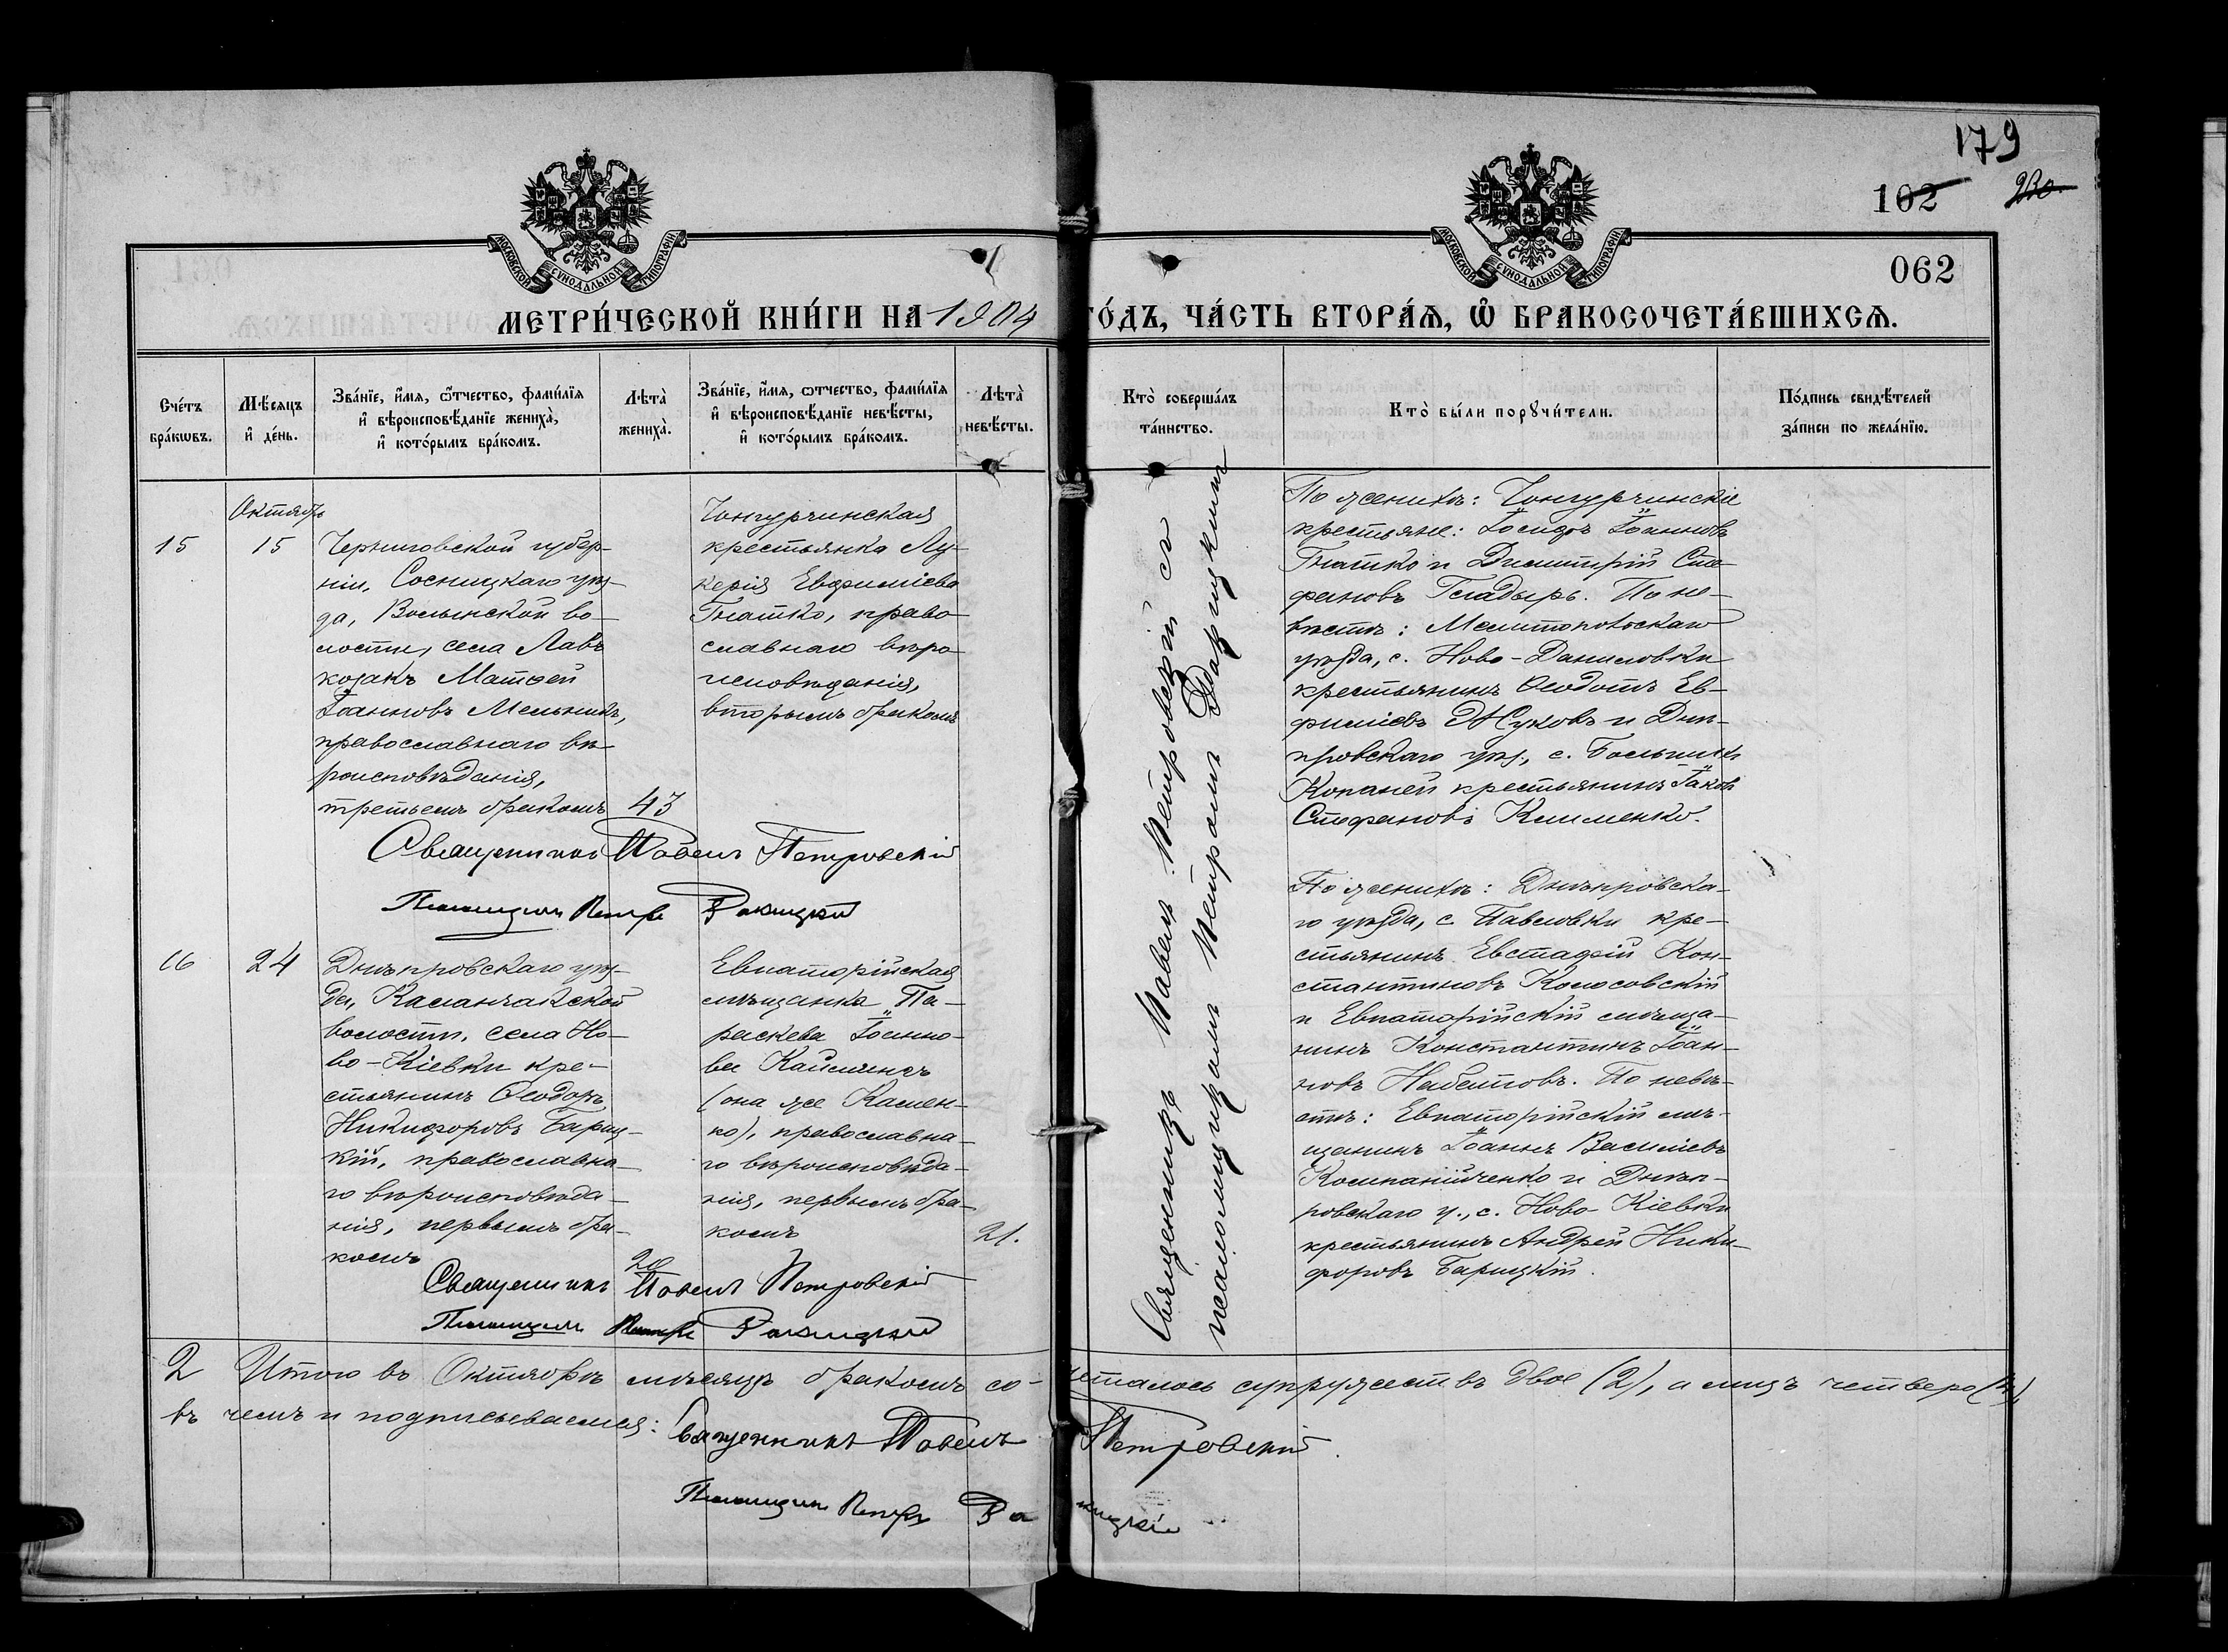 179
102
230.
062
МОСКОВСКОЙ СУНОДАЛЬНОЙ ТИПОГРАФІИ.
МОСКОВСКОЙ СУНОДАЛЬНОЙ ТИПОГРАФІИ.
МЕТРИ́ЧЕСКОЙ КНИ́ГИ НА 1904 ГО́ДЪ, ЧА́СТЬ ВТОРА́Ѧ, Ѽ БРАКОСОЧЕТА́ВШИХСѦ.
Сче́тъ бра́кѡвъ.
Мѣ́сяцъ и҆ де́нь.
Зва́нїе, и҆́мя, ѻ҆́тчество, фами́лїя
и҆ вѣроисповѣ́данїе жениха̀,
и҆ кото́рымъ бра́комъ.
Лѣта̀ жениха̀.
Зва́нїе, и҆́мя, ѻтчество, фами́лїя
и҆ вѣроисповѣ́данїе невѣ́сты,
и҆ кото́рымъ бра́комъ.
Лѣта̀ невѣ́сты.
Кто̀ соверша́лъ та́инство.
Кто̀ бы́ли порꙋчи́тели.
По́дпись свидѣ́телей
за́писи по жела́нїю.
Октябрь
15
15
Черниговской губер-
ніи, Сосницкаго уѣз-
да, Волынской во-
лости, села Лавъ
козакъ Матѳей
Іоанновъ Мельникъ,
православнаго вѣ-
роисповѣданія,
третьемъ бракомъ
43
Чонгурчинская
крестьянка Лу-
керія Евфиміева
Гнатко, право-
славнаго вѣро-
исповѣданія,
вторымъ бракомъ
Священникъ Павелъ Петровскій съ
псаломщикомъ Петромъ Ракицкимъ
По женихѣ: Чонгурчинскіе
крестьяне: Іосифъ Іоанновъ
Гнатко и Димитрій Сте-
фановъ Гладырь. По не-
вѣстѣ: Мелитопольскаго
уѣзда, с. Ново-Даниловки
крестьянинъ Ѳеодотъ Ев-
фиміевъ Жуковъ и Днѣ-
провскаго уѣз., с. Большихъ
Копаней крестьянинъ Іаковъ
Стефановъ Клименко.
Священникъ Павелъ Петровскій
Псаломщикъ Петръ Ракицкій
16
24
Днѣпровскаго уѣз-
да, Каланчакской
волости, села Но-
во-Кіевки кре-
стьянинъ Ѳеодоръ
Никифоровъ Бариц-
кій, православна-
го вѣроисповѣда-
нія, первымъ бра-
комъ
20
Евпаторійская
мѣщанка Па-
раскева Іоанно-
ва
(она же Камен-
ко), православна-
го вѣроисповѣда-
нія, первымъ бра-
комъ
21.
По женихѣ: Днѣпровска-
го уѣзда, с. Павловки кре-
стьянинъ Евстафій Кон-
стантиновъ Колосовскій
и Евпаторійскій мѣща-
нинъ Константинъ Іоан-
новъ Набатовъ. По невѣ-
стѣ: Евпаторійскій мѣ-
щанинъ Іоаннъ Василіевъ
Компанійченко и Днѣп-
ровскаго у., с. Ново-Кіевки
крестьянинъ Андрей Ники-
форовъ Барицкій.
Священникъ Павелъ Петровскій
Псаломщикъ Петръ Ракицкій
2 Итого въ Октябрѣ мѣсяцѣ бракомъ со-четалось супружествъ двое (2), а лицъ четверо (4),
въ чемъ и подписываемся: Священникъ Павелъ Петровскій.
Псаломщикъ Петръ Ракицкій